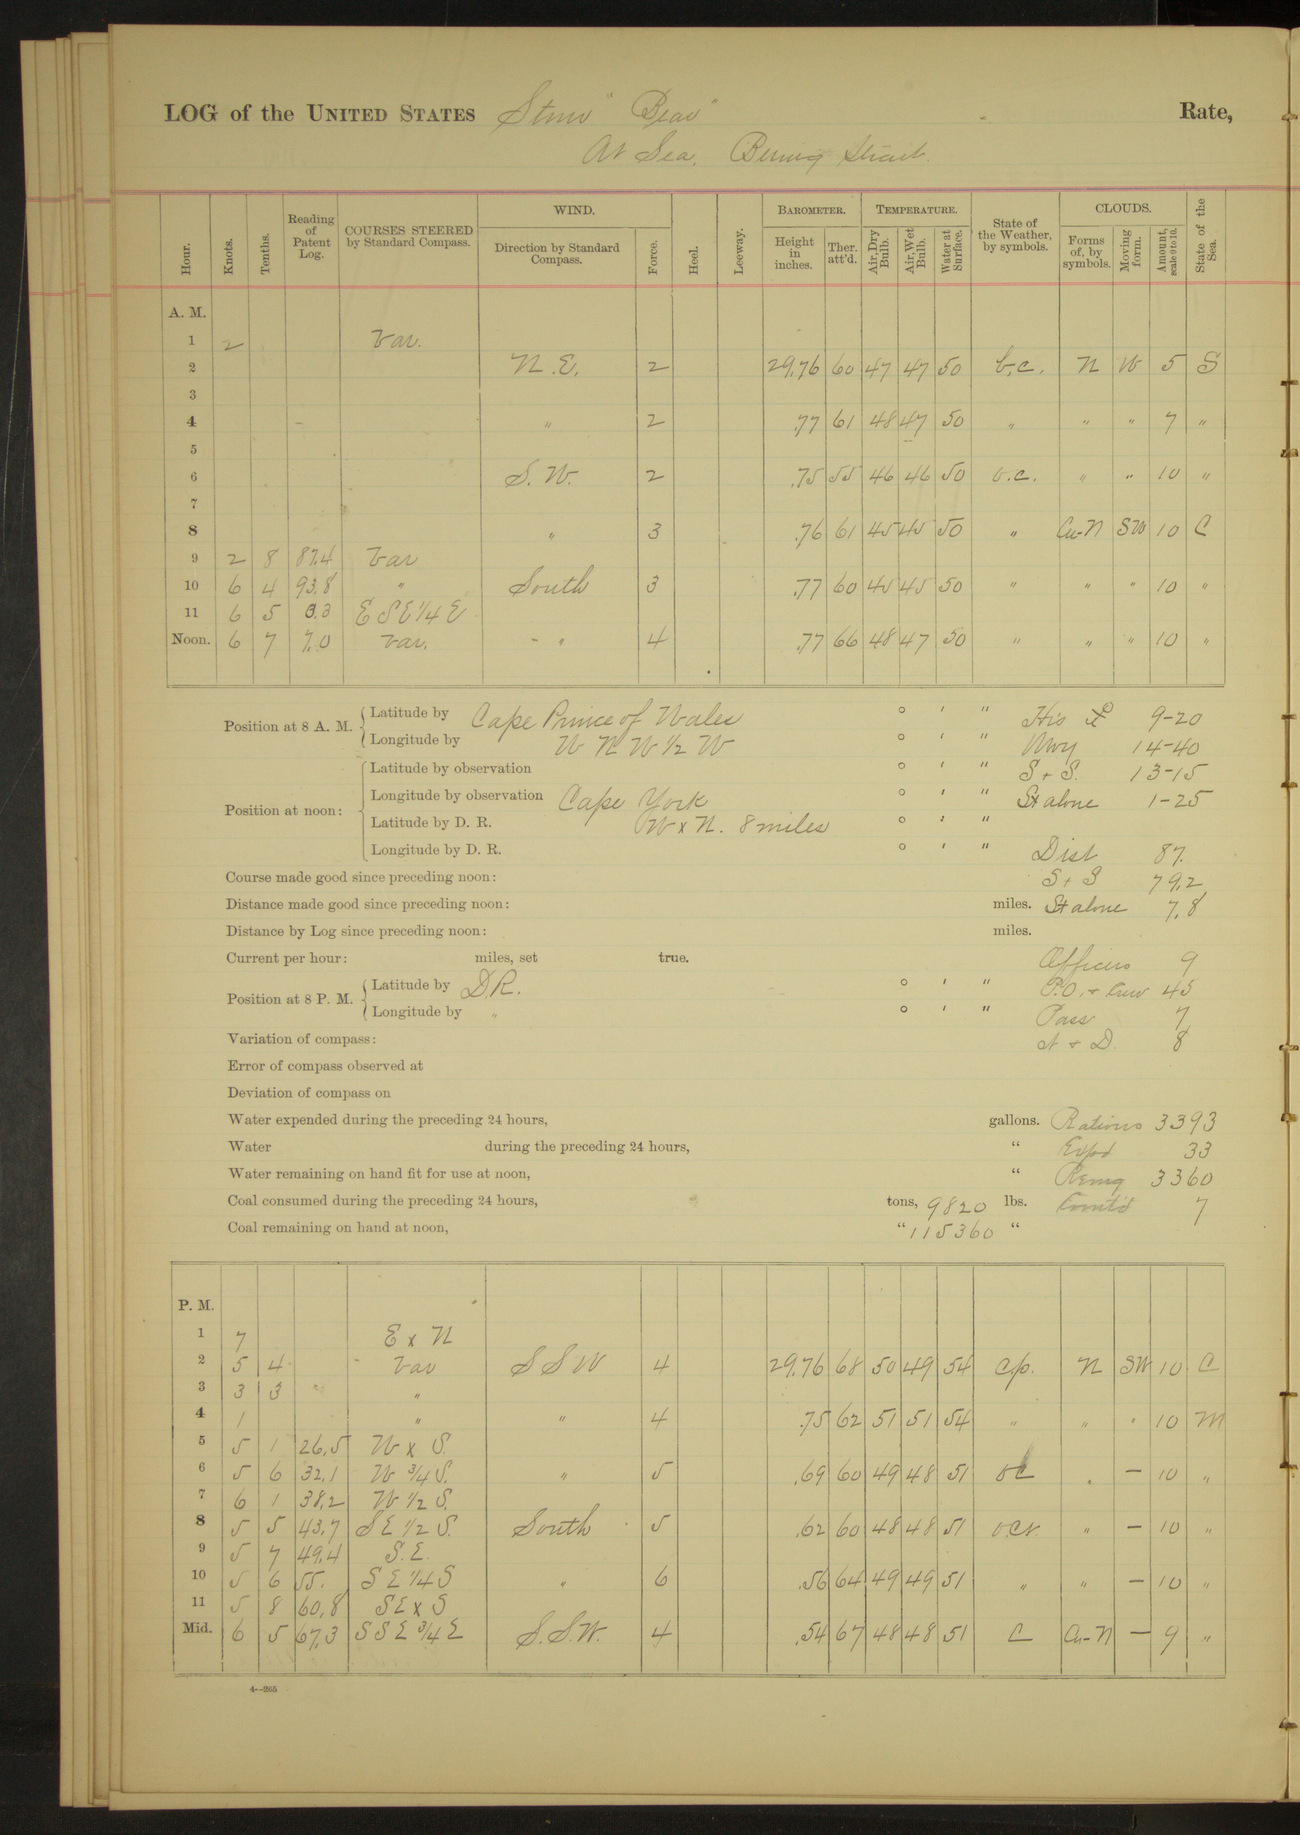 LOG of the UNITED STATES Stmr "Bear" Rate,
At Sea, Bering Strait.
Hour. Knots. Tenths. Reading of Patent Log. COURSES STEERED by Standard Compass. WIND. Direction by Standard Compass. Force. Heel. Leeway. BAROMETER. Height in inches. Ther. att'd. TEMPERATURE. Air, Dry Bulb. Air, Wet Bulb. Water at Surface. State of the Weather, by symbols. CLOUDS. Forms of, by symbols. Moving form. Amount, scale 0 to 10. State of the Sea.
A. M.
1 2 Var.
2 N.E. 2 29.76 60 47 47 50 b.c. N W 5 S
3
4 " 2 .77 61 48 47 50 " " " 7 "
5
6 S.W. 2 .75 55 46 46 50 o.c. " " 10 "
7
8 " 3 .76 61 45 45 50 " Cu-N SW 10 C
9 2 8 87.4 Var
10 6 4 93.8 " South 3 .77 60 45 45 50 " " " 10 "
11 6 5 0.3 ESE 1/4 E
Noon. 6 7 7.0 Var. " 4 .77 66 48 47 50 " " " 10 "
Position at 8 A. M. Latitude by Cape Prince of Wales ° ' " Hrs 9-20
Longitude by W N W 1/2 W ° ' " Mvg 14-40
Position at noon: Latitude by observation ° ' " S + S. 13-15
Longitude by observation Cape York ° ' " St alone 1-25
Latitude by D. R. W x N. 8 miles ° ' "
Longitude by D. R. ° ' " Dist 87.
Course made good since preceding noon: S + S 79.2
Distance made good since preceding noon: miles. St alone 7.8
Distance by Log since preceding noon: miles.
Current per hour: miles, set true. Officers 9
Position at 8 P. M. Latitude by D.R. ° ' " P.O. + Crew 45
Longitude by " ° ' " Pass 7
Variation of compass: N + D. 8
Error of compass observed at
Deviation of compass on
Water expended during the preceding 24 hours, gallons. Rations 3393
Water during the preceding 24 hours, " Expd 33
Water remaining on hand fit for use at noon, " Remg 3360
Coal consumed during the preceding 24 hours, tons, 9820 lbs. Comt'd 7
Coal remaining on hand at noon, " 115360 "
P. M.
1 7 E x N
2 5 4 Var SSW 4 29.76 68 50 49 54 c.p. N SW 10 C
3 3 3 "
4 1 " " 4 .75 62 51 51 54 " " " 10 M
5 5 1 26.5 W x S.
6 5 6 32.1 W 3/4 S. " 5 .69 60 49 48 51 oc " — 10 "
7 6 1 38.2 W 1/2 S.
8 5 5 43.7 SE 1/2 S. South 5 .62 60 48 48 51 o.c.r. " — 10 "
9 5 7 49.4 S.E.
10 5 6 55. SE 1/4 S " 6 .56 64 49 49 51 " " — 10 "
11 5 8 60.8 SE x S
Mid. 6 5 67.3 SSE 3/4 E S.S.W. 4 .54 67 48 48 51 C Cu-N — 9 "
4--265